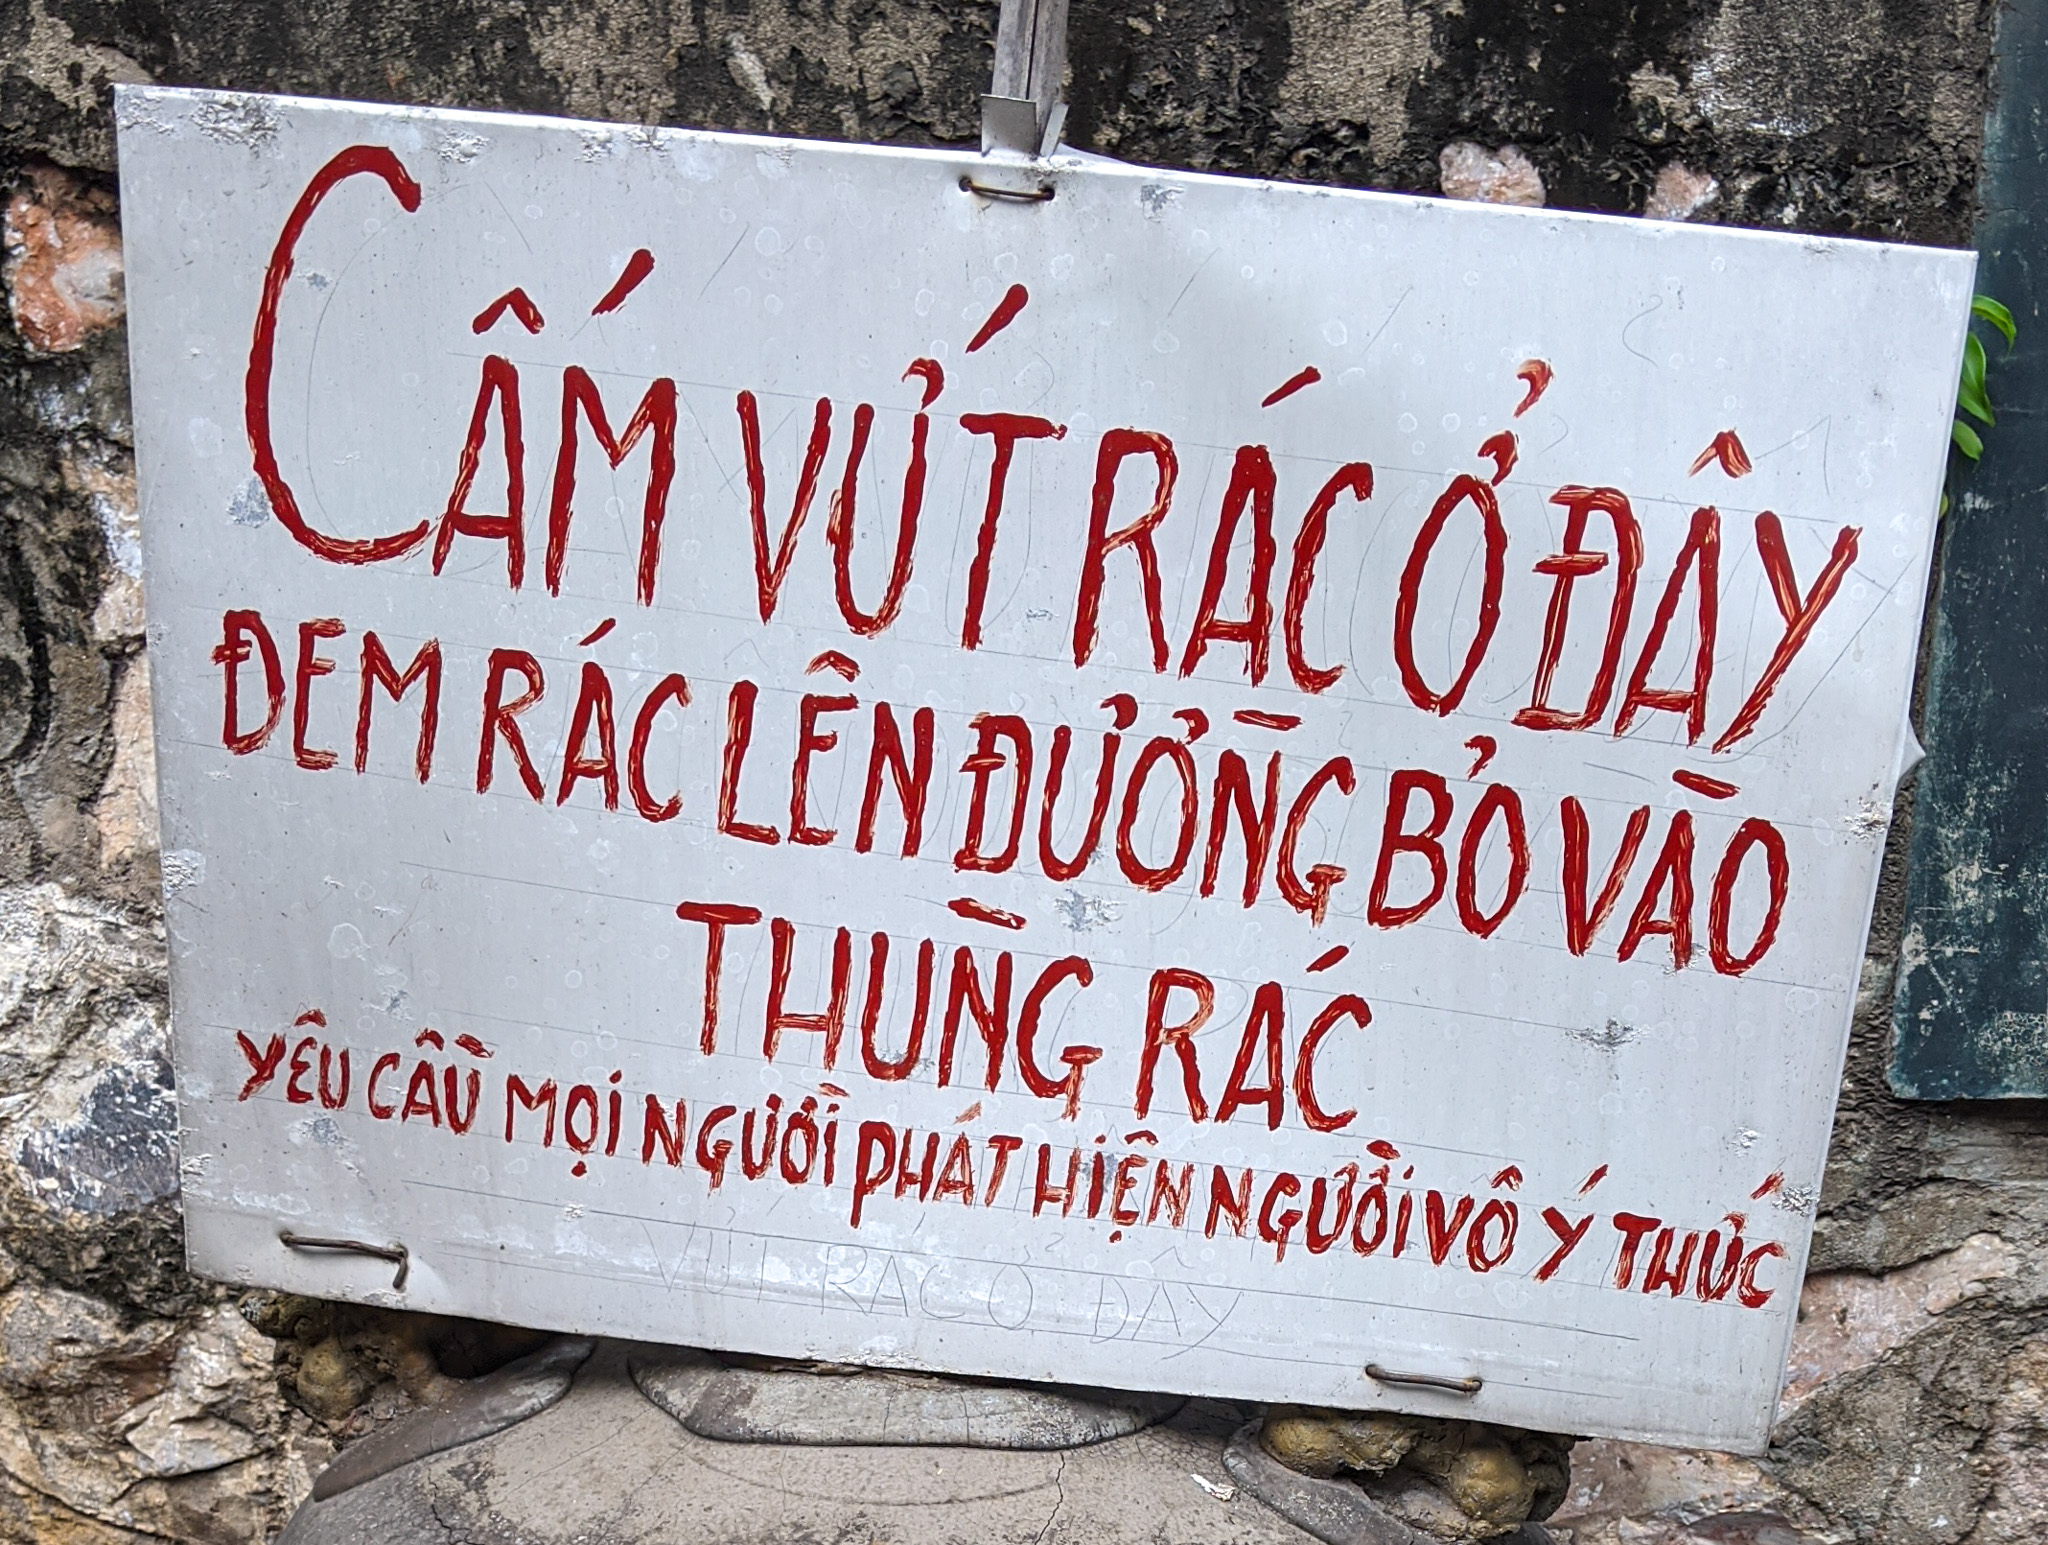 CẤM VỨT RÁC Ở ĐÂY
ĐEM RÁC LÊN ĐƯỜNG BỎ VÀO
THÙNG RÁC
YÊU CẦU MỌI NGƯỜI PHÁT HIỆN NGƯỜI VÔ Ý THỨC
VỨT RÁC Ở ĐÂY